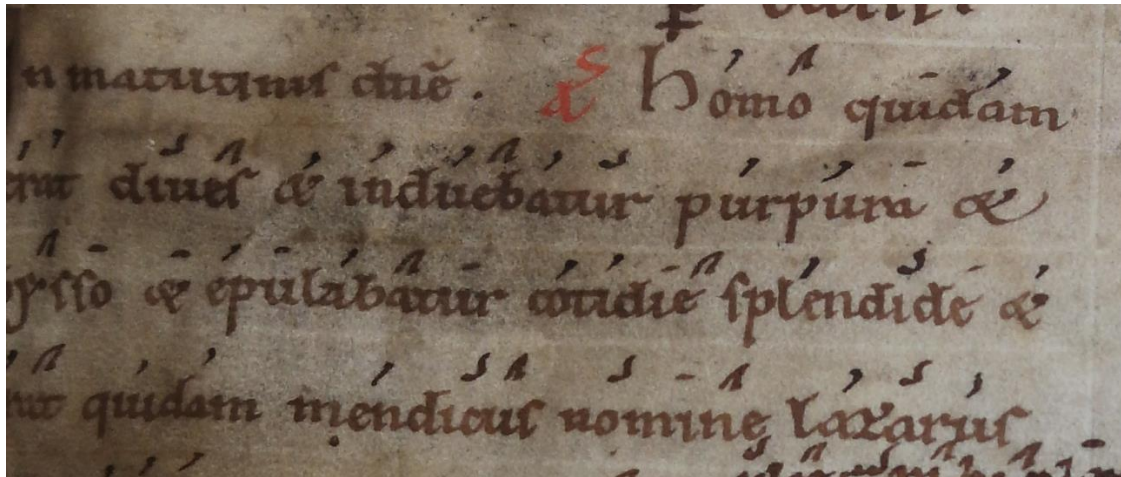 n matutinis dñe .
a Homo quidam
erat diues & induebatur purpura &
bysso & epulabatur cotidie splendide &
erat quidam mendicus nomine lazarus